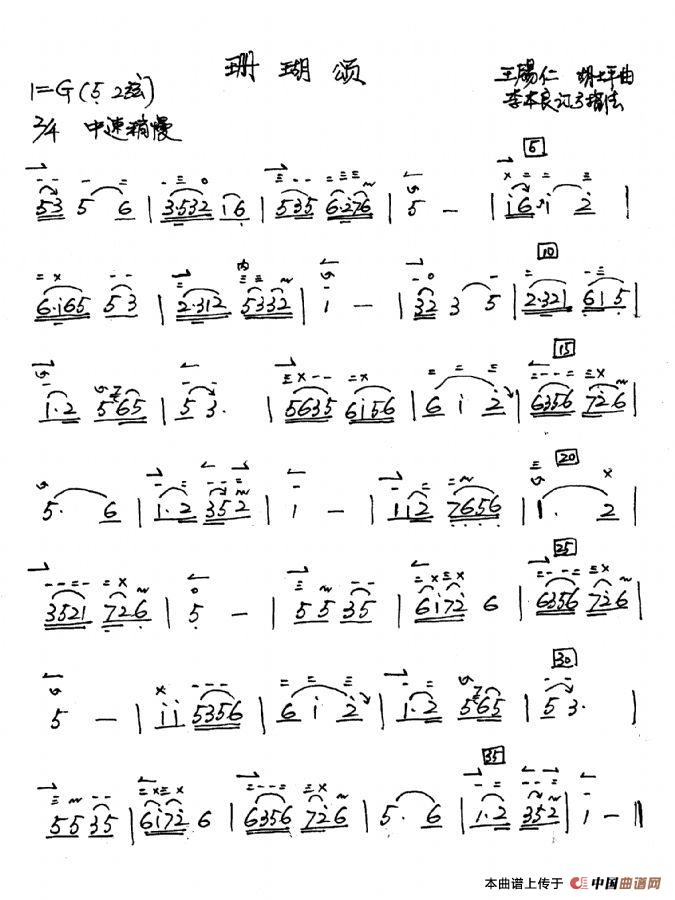 珊瑚颂
1=G(5 2弦)
王锡仁 胡士平曲
李本良订弓指法
2/4 中速稍慢
5
53 5 6 | 3·532 i6 | 535 6·276 | 5 — | i6·i 2 |
10
6·i65 53 | 2·312 5332 | 1 — | 32 3 5 | 2·321 615 |
15
1·2 565 | 5 3· | 5635 6i56 | 6 i 2 | 6356 726 |
20
5· 6 | 1·2 352 | 1 — | 112 7656 | 1· 2 |
25
3521 726 | 5 — | 55 35 | 6i72 6 | 6356 726 |
30
5 — | ii 5356 | 6 i 2 | 1·2 565 | 5 3· |
35
55 35 | 6i72 6 | 6356 726 | 5· 6 | 1·2 352 | 1 — ‖
本曲谱上传于 中国曲谱网